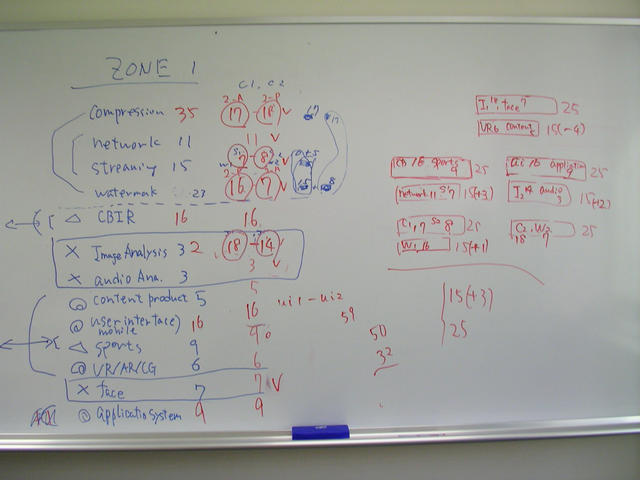 ZONE 1
C1. C2
2-A 2-P
Compression 35 17 - 18 V
network 11 11 V
streaming 15 7 - 8
watermak 23 16 7 V
△ CBIR 16 16
× Image Analysis 32 18 - 14
× audio Ana. 3 3 V
◎ content product 5 5
◎ user interface) 16 16 ui1 - ui2
mobile
59
△ sports 9 9
◎ VR/AR/CG 6 6
× face 7 7 V
◎ Applicatio System 9 9
50
32
I1 18, face 7 25
VR6 content 5 15(-4)
sports 9 25
network 11 S1 7 15(+3)
C1, 17 S2 8 25
W1, 16 15(+1)
ui 16 Application 9 25
I2 14 audio 3 15(+2)
C2, W2 25
18 7
15(+3)
25